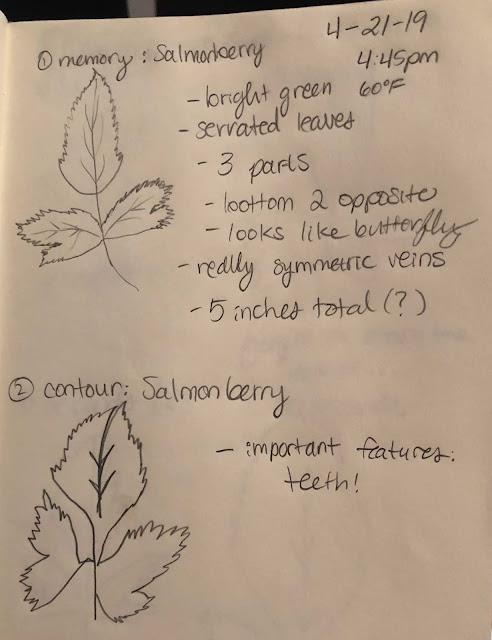 4-21-19
① memory: Salmonberry
4:45pm
- bright green
60°F
- serrated leaves
- 3 parts
- bottom 2 opposite
- looks like butterfly
- really symmetric veins
- 5 inches total (?)
② contour: Salmonberry
- important features:
teeth!